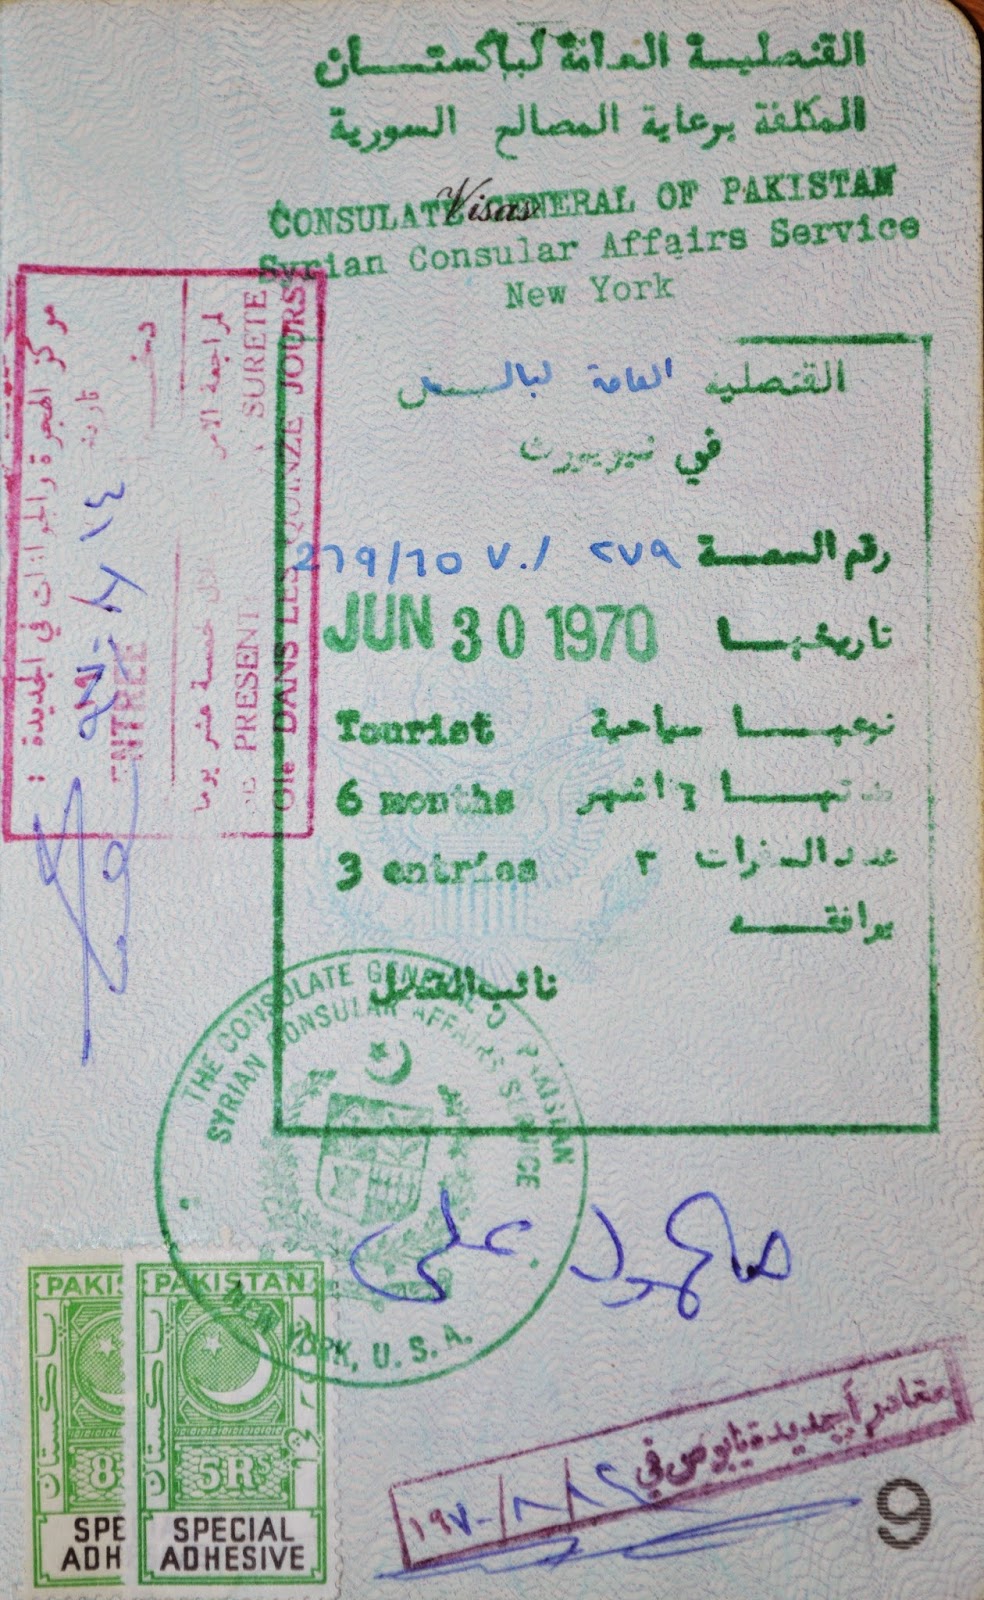 القنصلية العامة لباكستان
المكلفة برعاية المصالح السورية
Visas
CONSULATE GENERAL OF PAKISTAN
Syrian Consular Affairs Service
New York
القنصلية العامة
في نيويورك
رقم السمة ٢٧٩ /٧٠
تاريخها JUN 30 1970
Tourist نوعها سياحية
6 months مدتها ٦ اشهر
3 entries عدد السفرات ٣
موافقه
نائب القنصل
مركز الهجرة والجوازات في الجديدة :
ENTREE
لمراجعة الامن
خلال خمسة عشر يوما
SE PRESENT SURETE
Gle DANS LES QUINZE JOURS
THE CONSULATE GENERAL OF PAKISTAN
SYRIAN CONSULAR AFFAIRS SERVICE
NEW YORK, U.S.A.
PAKIS
8
SPE
ADH
PAKISTAN
پاکستان
5Rs
SPECIAL
ADHESIVE
١٩٧٠/٨/
9